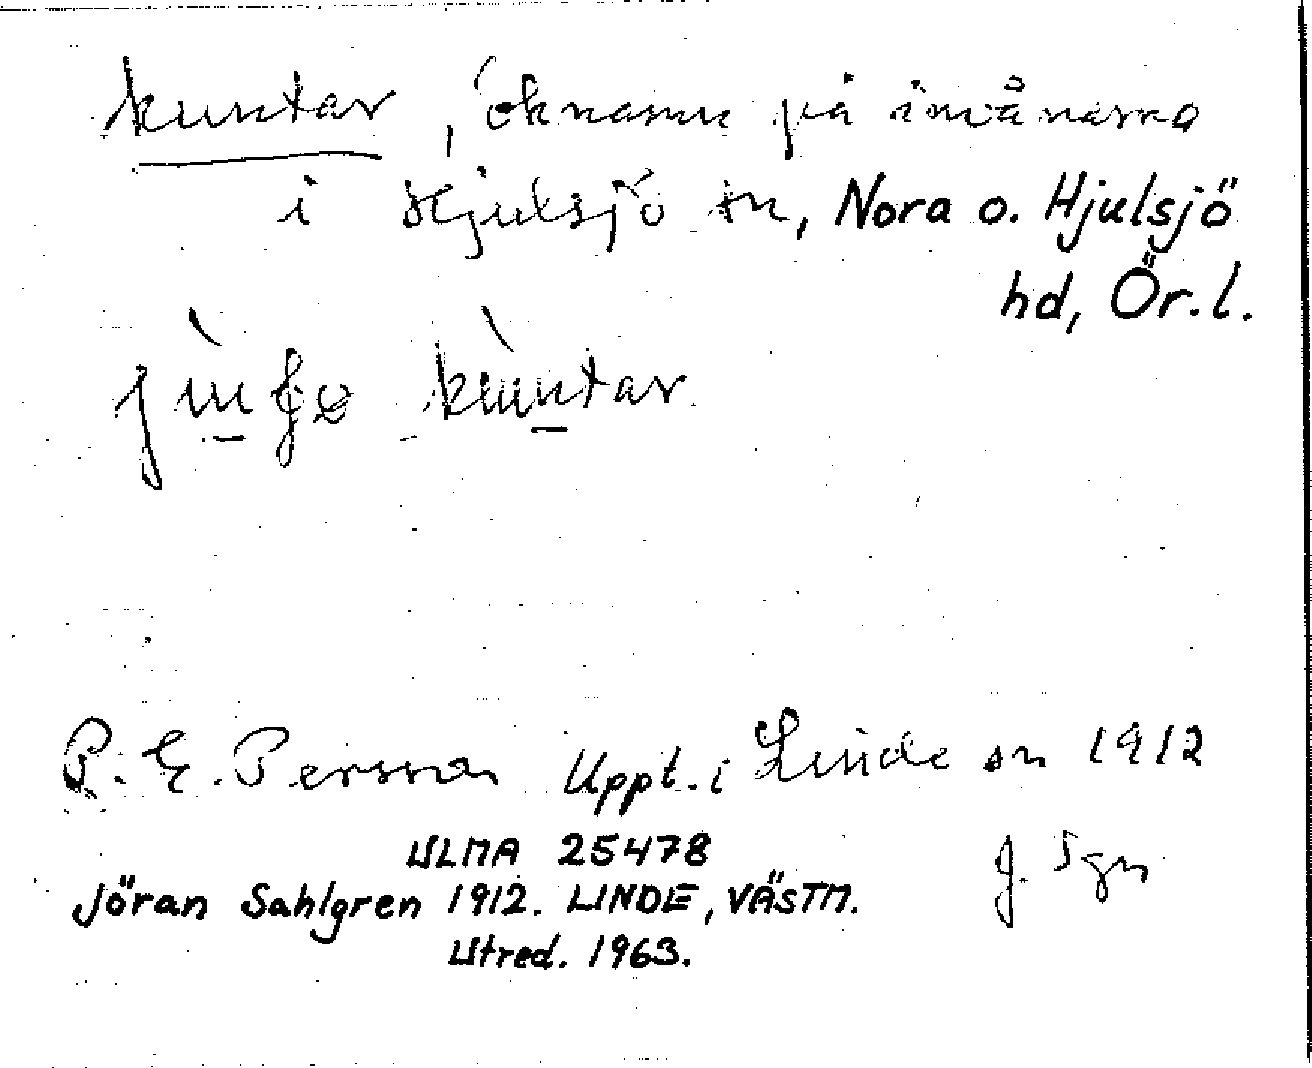 kuntar, öknamn på invånarna
i Hjulsjö sn, Nora o. Hjulsjö
hd, Ör.l.
kuntar
P. E. Persson Uppt. i Linde sn 1912
ULMA 25478 J. Sgn
Jöran Sahlgren 1912. LINDE, VÄSTM.
Utred. 1963.